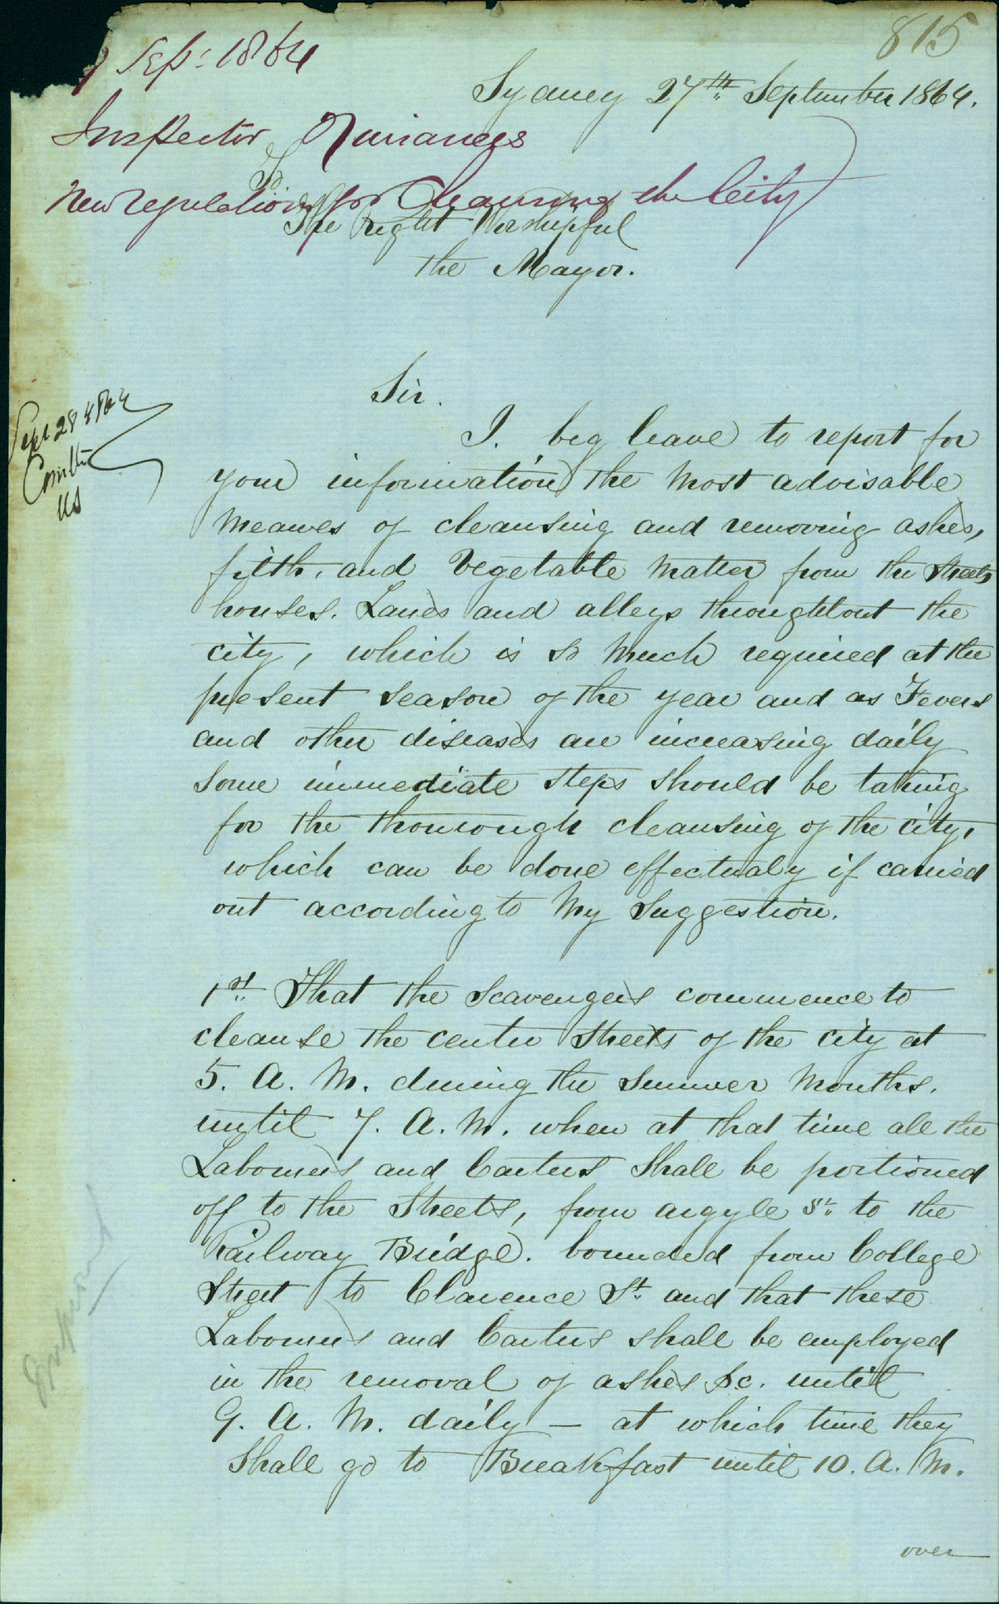 815
Sep: 1864
Sydney 27th September 1864.
Inspector Nuisances
To
New regulations for Cleansing the City
The Right Worshipful
the Mayor.
Sir.
Sept 28 1864
I. beg leave to report for
your information the most advisable
meanes of cleansing and removing ashes,
filth, and Vegetable matter from the streets
houses. Lanes and alleys throughtout the
city, which is so much required at the
present season of the year and as Fevers
and other diseases are increasing daily
some immediate steps should be taking
for the thourough cleansing of the city,
which can be done effectualy if carried
out according to My Suggestion.
1st That the Scavengers commence to
cleanse the center Streets of the city at
5. A. M. during the Summer Months.
until 7. A. M. when at that time all the
Labourers and Carters Shall be portioned
off to the Streets, from argyle St. to the
Railway Bridge. bounded from College
Street to Clarence St. and that these
Labourers and Carters shall be employed
in the removal of ashes &c. until
9. A. M. daily — at which time they
Shall go to Breakfast until 10. A. M.
over